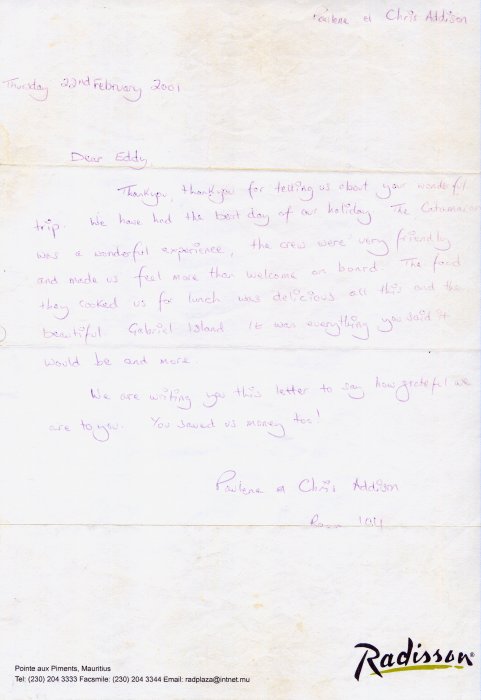 Paulena et Chris Addison
Thursday 22nd February 2001
Dear Eddy,
Thankyou, thankyou for telling us about your wonderful
trip. We have had the best day of our holiday The Catamaran
was a wonderful experience, the crew were very friendly
and made us feel more than welcome on board. The food
they cooked us for lunch was delicious all this and the
beautiful Gabriel Island It was everything you said it
would be and more.
We are writing you this letter to say how grateful we
are to you. You saved us money too!
Paulena et Chris Addison
Room 104
Radisson®
Pointe aux Piments, Mauritius
Tel: (230) 204 3333 Facsmile: (230) 204 3344 Email: radplaza@intnet.mu